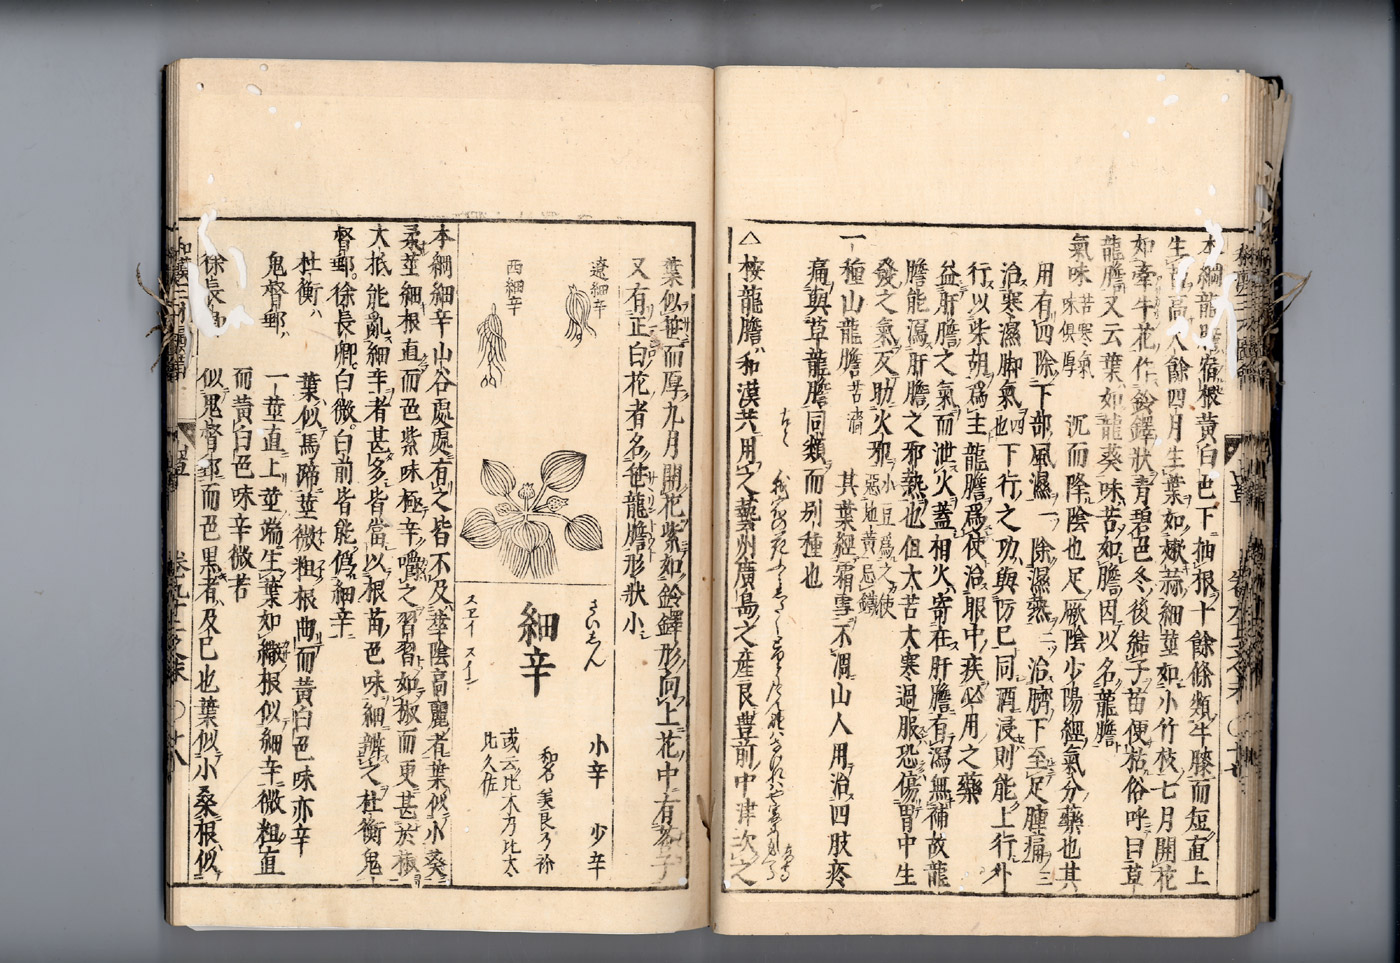 本綱龍膽宿根黃白色下抽根十餘條類牛膝而短直上
生苗高尺餘四月生葉如嫩蒜細莖如小竹枝七月開花
如牽牛花作鈴鐸狀青碧色冬後結子苗便枯俗呼曰草
龍膽又云葉如龍葵味苦如膽因以名龍膽
氣味 苦寒氣味俱厚 沉而降陰也足厥陰少陽經氣分藥也其
用有四除下部風濕一除濕熱二治臍下至足腫痛三
治寒濕脚氣四也下行之功與防已同酒浸則能上行外
行以柴胡爲主龍膽爲使治眼中疾必用之藥
益肝膽之氣而泄火蓋相火寄在肝膽有瀉無補故龍
膽能瀉肝膽之邪熱也但大苦大寒過服恐傷胃中生
發之氣反助火邪 小豆爲之使惡地黃忌鐵
一種山龍膽 苦濇 其葉經霜雪不凋山人用治四肢疼
痛與草龍膽同類而別種也
△按龍膽和漢共用之藝州廣島之產良豊前中津次之
葉似笹而厚九月開花紫如鈴鐸形向上花中有子
又有正白花者名笹龍膽形狀小
遼細辛
西細辛
さいしん
細辛
スヱイ スイン
小辛 少辛
和名美良乃祢
或云比木乃比太
比久佐
本綱細辛山谷處處有之皆不及華陰高麗者葉似小葵
柔莖細根直而色紫味極辛嚼之習習如椒而更甚於椒
大抵能亂細辛者甚多皆當以根苗色味細辨之杜衡鬼
督郵徐長卿白微白前皆能僞細辛
杜衡ハ 葉似馬蹄莖微粗根曲而黃白色味亦辛
鬼督郵ハ 一莖直上莖端生葉如繖根似細辛微粗直
而黃白色味辛微苦
徐長卿ハ 似鬼督郵而色黑者及已也葉似小桑根似